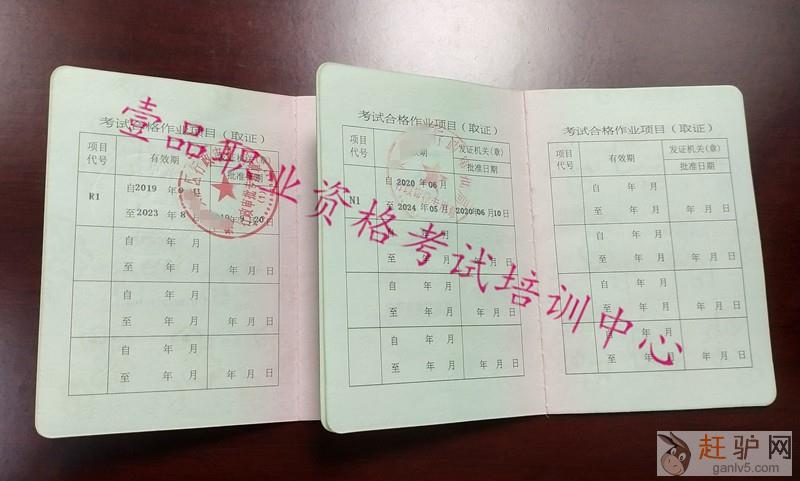 考试合格作业项目（取证）
项目代号 有效期 发证机关(章)
批准日期
R1 自 2019 年 9 月
至 2023 年 8 9月20日
自 年 月
至 年 月 年 月 日
自 年 月
至 年 月 年 月 日
自 年 月
至 年 月 年 月 日
考试合格作业项目（取证）
项目代号 期 发证机关(章)
批准日期
N1 自 2020 年 06 月
至 2024 年 05 月 2020年06月10日
自 年 月
至 年 月 年 月 日
自 年 月
至 年 月 年 月 日
自 年 月
至 年 月 年 月 日
考试合格作业项目（取证）
项目代号 有效期 发证机关(章)
批准日期
自 年 月
至 年 月 年 月 日
自 年 月
至 年 月 年 月 日
自 年 月
至 年 月 年 月 日
自 年 月
至 年 月 年 月 日
壹品职业资格考试培训中心
赶驴网
ganlv5.com